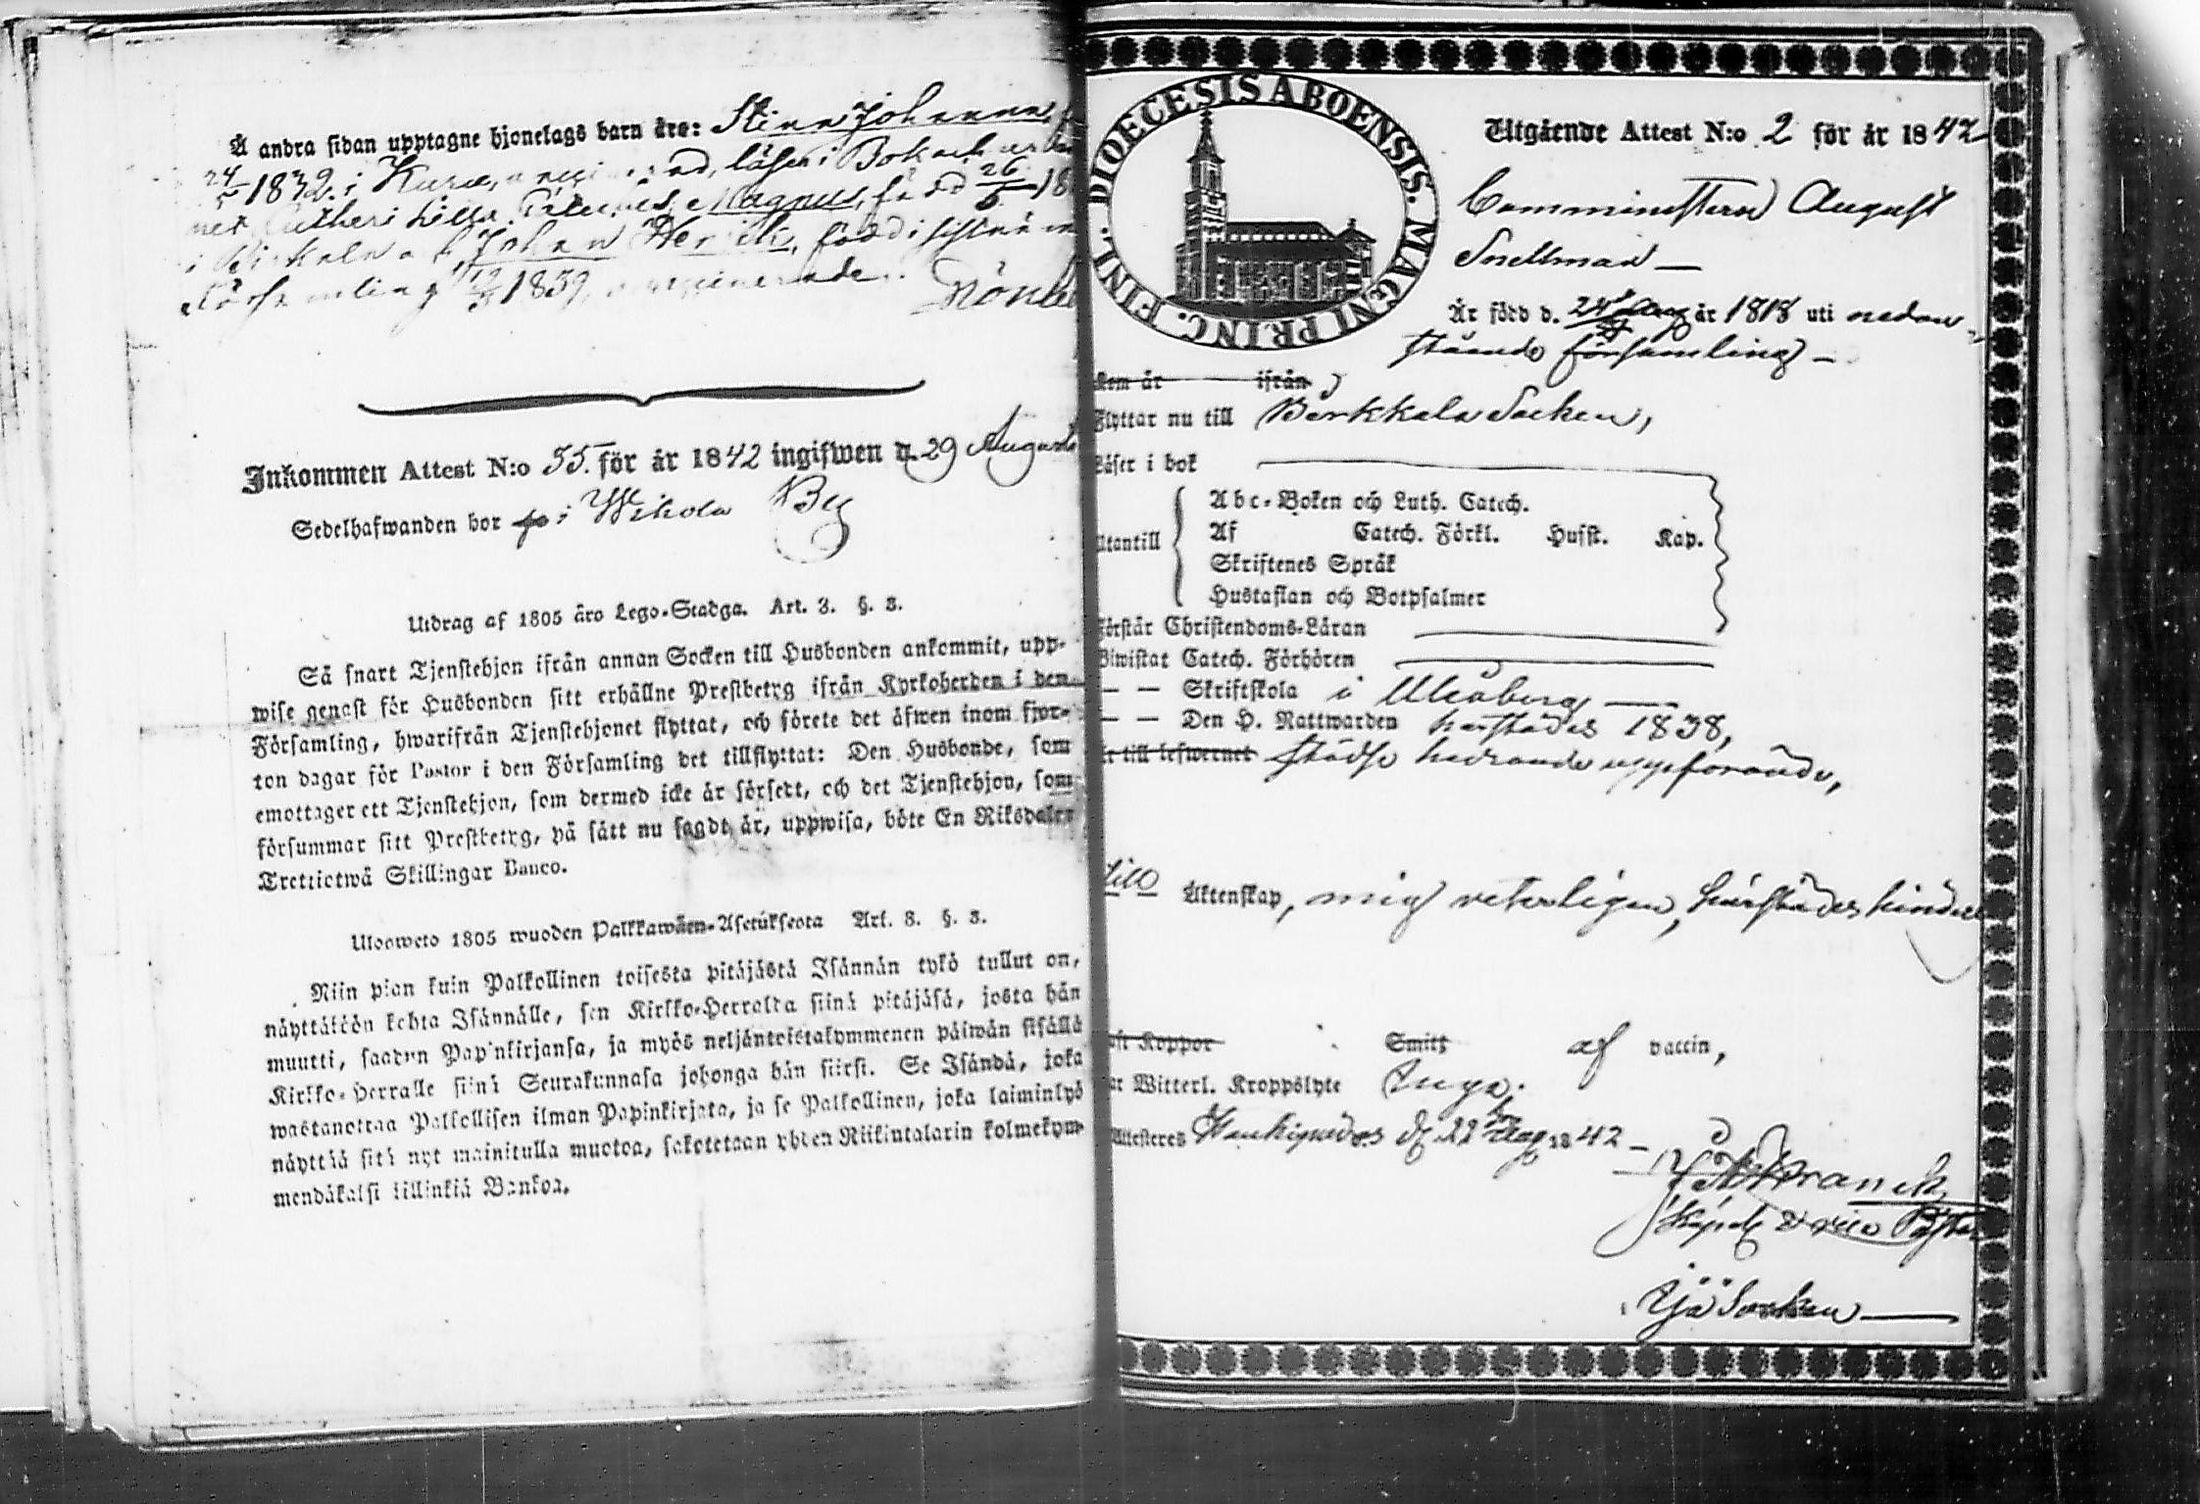 Å andra sidan upptagne hjonelags barn äro: Stina Johanna,
1832. i läser i Bok
Magnus, född 26
Johan Henrik, född i
1839,
Inkommen Attest N:o 55. för år 1842 ingifwen d. 29 Augusti
Sedelhafwanden bor i Wikola By
Utdrag af 1805 års Lego-Stadga. Art. 3. §. 3.
Så snart Tjenstehjon ifrån annan Socken till Husbonden ankommit, upp-
wise genast för Husbonden sitt erhållne Prestbetyg ifrån Kyrkoherden i den
Församling, hwarifrån Tjenstehjonet flyttat, och förete det äfwen inom fjor-
ton dagar för Pastor i den Församling det tillflyttat: Den Husbonde, som
emottager ett Tjenstehjon, som dermed icke är försedt, och det Tjenstehjon, som
försummar sitt Prestbetyg, på sätt nu sagdt är, uppwisa, böte En Riksdaler
Trettiotwå Skillingar Banco.
Ulosweto 1805 wuoden Palkkawäen-Asetuksesta Art. 3. §. 3.
Niin pian kuin Palkollinen toisesta pitäjästä Isännän tykö tullut on,
näyttäköön kohta Isännälle, sen Kirkko-Herralta siinä pitäjäsä, josta hän
muutti, saadun Papinkirjansa, ja myös neljäntoistakymmenen päiwän sisällä
Kirkko-Herralle siinä Seurakunnasa johonga hän siirsi. Se Isändä, joka
wastanottaa Palkollisen ilman Papinkirjata, ja se Palkollinen, joka laiminlyö
näyttää sitä nyt mainitulla muotoa, sakotetaan yhten Riikintalarin kolmekym-
mendäkaksi killinkiä Bankoa.
FINL. DIOECESIS ABOENSIS. MAGNI PRINC.
Utgående Attest N:o 2 för år 1842
Comministern August
Snellman
Är född d. 24 Aug år 1818 uti nedan-
stående församling
Kom år ifrån
Flyttar nu till Birkkala Socken,
Läser i bok
Utantill
Abc-Boken och Luth. Catech.
Af Catech. Förkl. Husst. Kap.
Skriftenes Språk
Hustaflan och Botpsalmer
Förstår Christendoms-Läran
Biwistat Catech. Förhören
— — Skriftskola i Uleåborg
— — Den H. Nattwarden härstädes 1838,
Är till lefwernet städse hedrande uppförande,
till Äktenskap, mig veterligen, härstädes hinder
haft Koppor Smitt af vaccin,
Har Witterl. Kroppslyte Inga.
Attesteres Haukipudas d. 22 Aug 1842
Franck
Ijo Socken